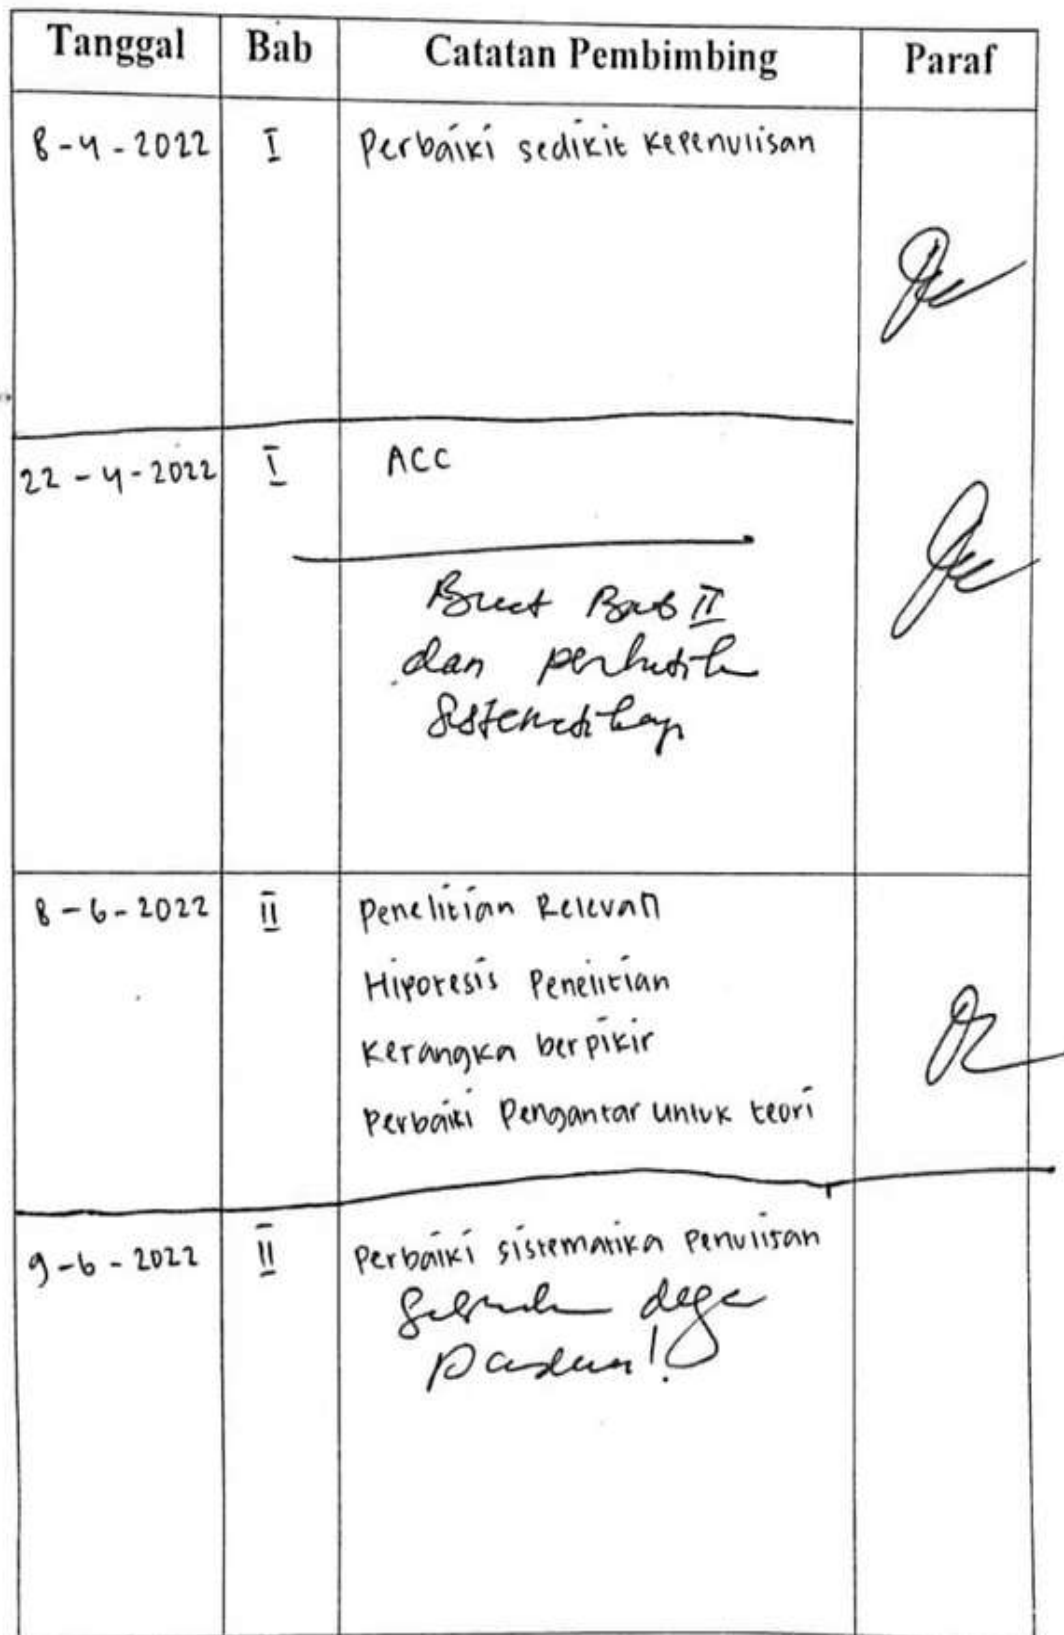 Tanggal Bab Catatan Pembimbing Paraf
8-4-2022 I Perbaiki sedikit Kepenulisan
22-4-2022 I ACC
Buat Bab II
dan perhatik
Sistematikany
8-6-2022 II Penelitian Relevan
Hipotesis Penelitian
Kerangka berpikir
Perbaiki Pengantar untuk teori
9-6-2022 II Perbaiki sistematika Penulisan